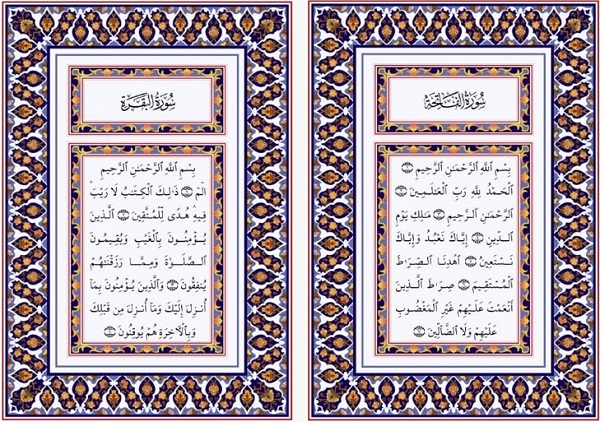 سُورَةُ الْفَاتِحَةِ
بِسْمِ ٱللَّهِ ٱلرَّحْمَٰنِ ٱلرَّحِيمِ ۝
ٱلْحَمْدُ لِلَّهِ رَبِّ ٱلْعَٰلَمِينَ ۝
ٱلرَّحْمَٰنِ ٱلرَّحِيمِ ۝ مَٰلِكِ يَوْمِ
ٱلدِّينِ ۝ إِيَّاكَ نَعْبُدُ وَإِيَّاكَ
نَسْتَعِينُ ۝ ٱهْدِنَا ٱلصِّرَٰطَ
ٱلْمُسْتَقِيمَ ۝ صِرَٰطَ ٱلَّذِينَ
أَنْعَمْتَ عَلَيْهِمْ غَيْرِ ٱلْمَغْضُوبِ
عَلَيْهِمْ وَلَا ٱلضَّآلِّينَ ۝
سُورَةُ الْبَقَرَةِ
بِسْمِ ٱللَّهِ ٱلرَّحْمَٰنِ ٱلرَّحِيمِ
الٓمٓ ۝ ذَٰلِكَ ٱلْكِتَٰبُ لَا رَيْبَ
فِيهِ هُدًى لِّلْمُتَّقِينَ ۝ ٱلَّذِينَ
يُؤْمِنُونَ بِٱلْغَيْبِ وَيُقِيمُونَ
ٱلصَّلَوٰةَ وَمِمَّا رَزَقْنَٰهُمْ
يُنفِقُونَ ۝ وَٱلَّذِينَ يُؤْمِنُونَ بِمَآ
أُنزِلَ إِلَيْكَ وَمَآ أُنزِلَ مِن قَبْلِكَ
وَبِٱلْءَاخِرَةِ هُمْ يُوقِنُونَ ۝